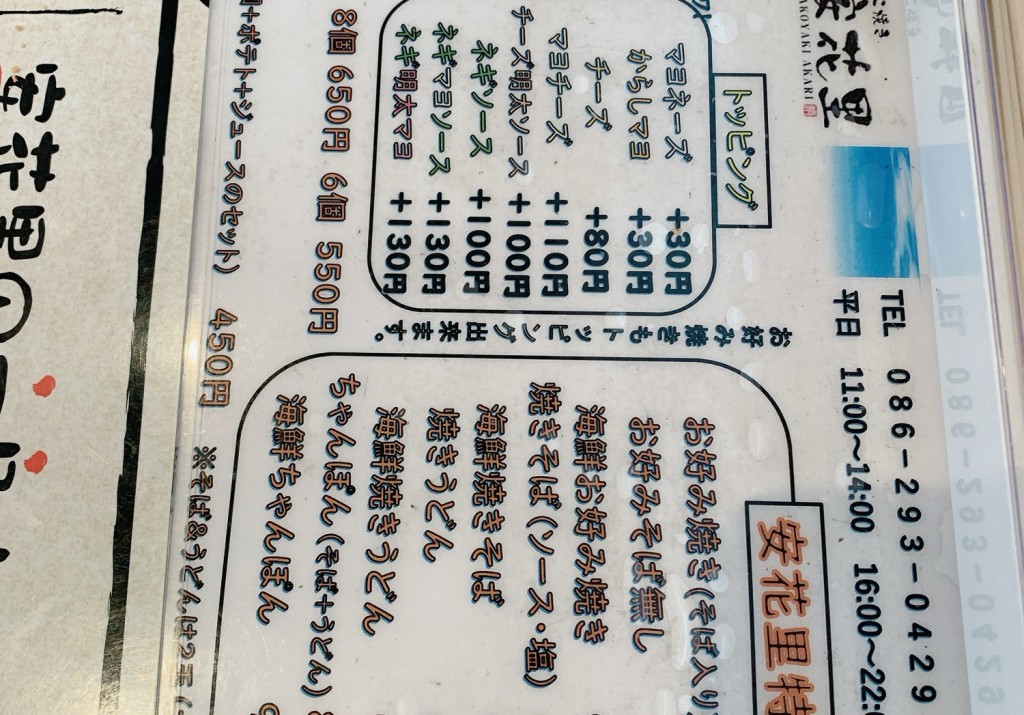 安花里
AKOYAKI AKARI
TEL 086-293-0429
平日 11:00～14:00 16:00～22:
トッピング
マヨネーズ +30円
からしマヨ +30円
チーズ +80円
マヨチーズ +110円
チーズ明太ソース +100円
ネギソース +100円
ネギマヨソース +130円
ネギ明太マヨ +130円
お好み焼きもトッピング出来ます。
8個 650円 6個 550円
+ポテト+ジュースのセット) 450円
安花里特
お好み焼き(そば入り
お好みそば無し
海鮮お好み焼き
焼きそば(ソース・塩)
海鮮焼きそば
焼きうどん
海鮮焼きうどん
ちゃんぽん(そば+うどん)
海鮮ちゃんぽん
※そば&うどんは2玉(
安花里の